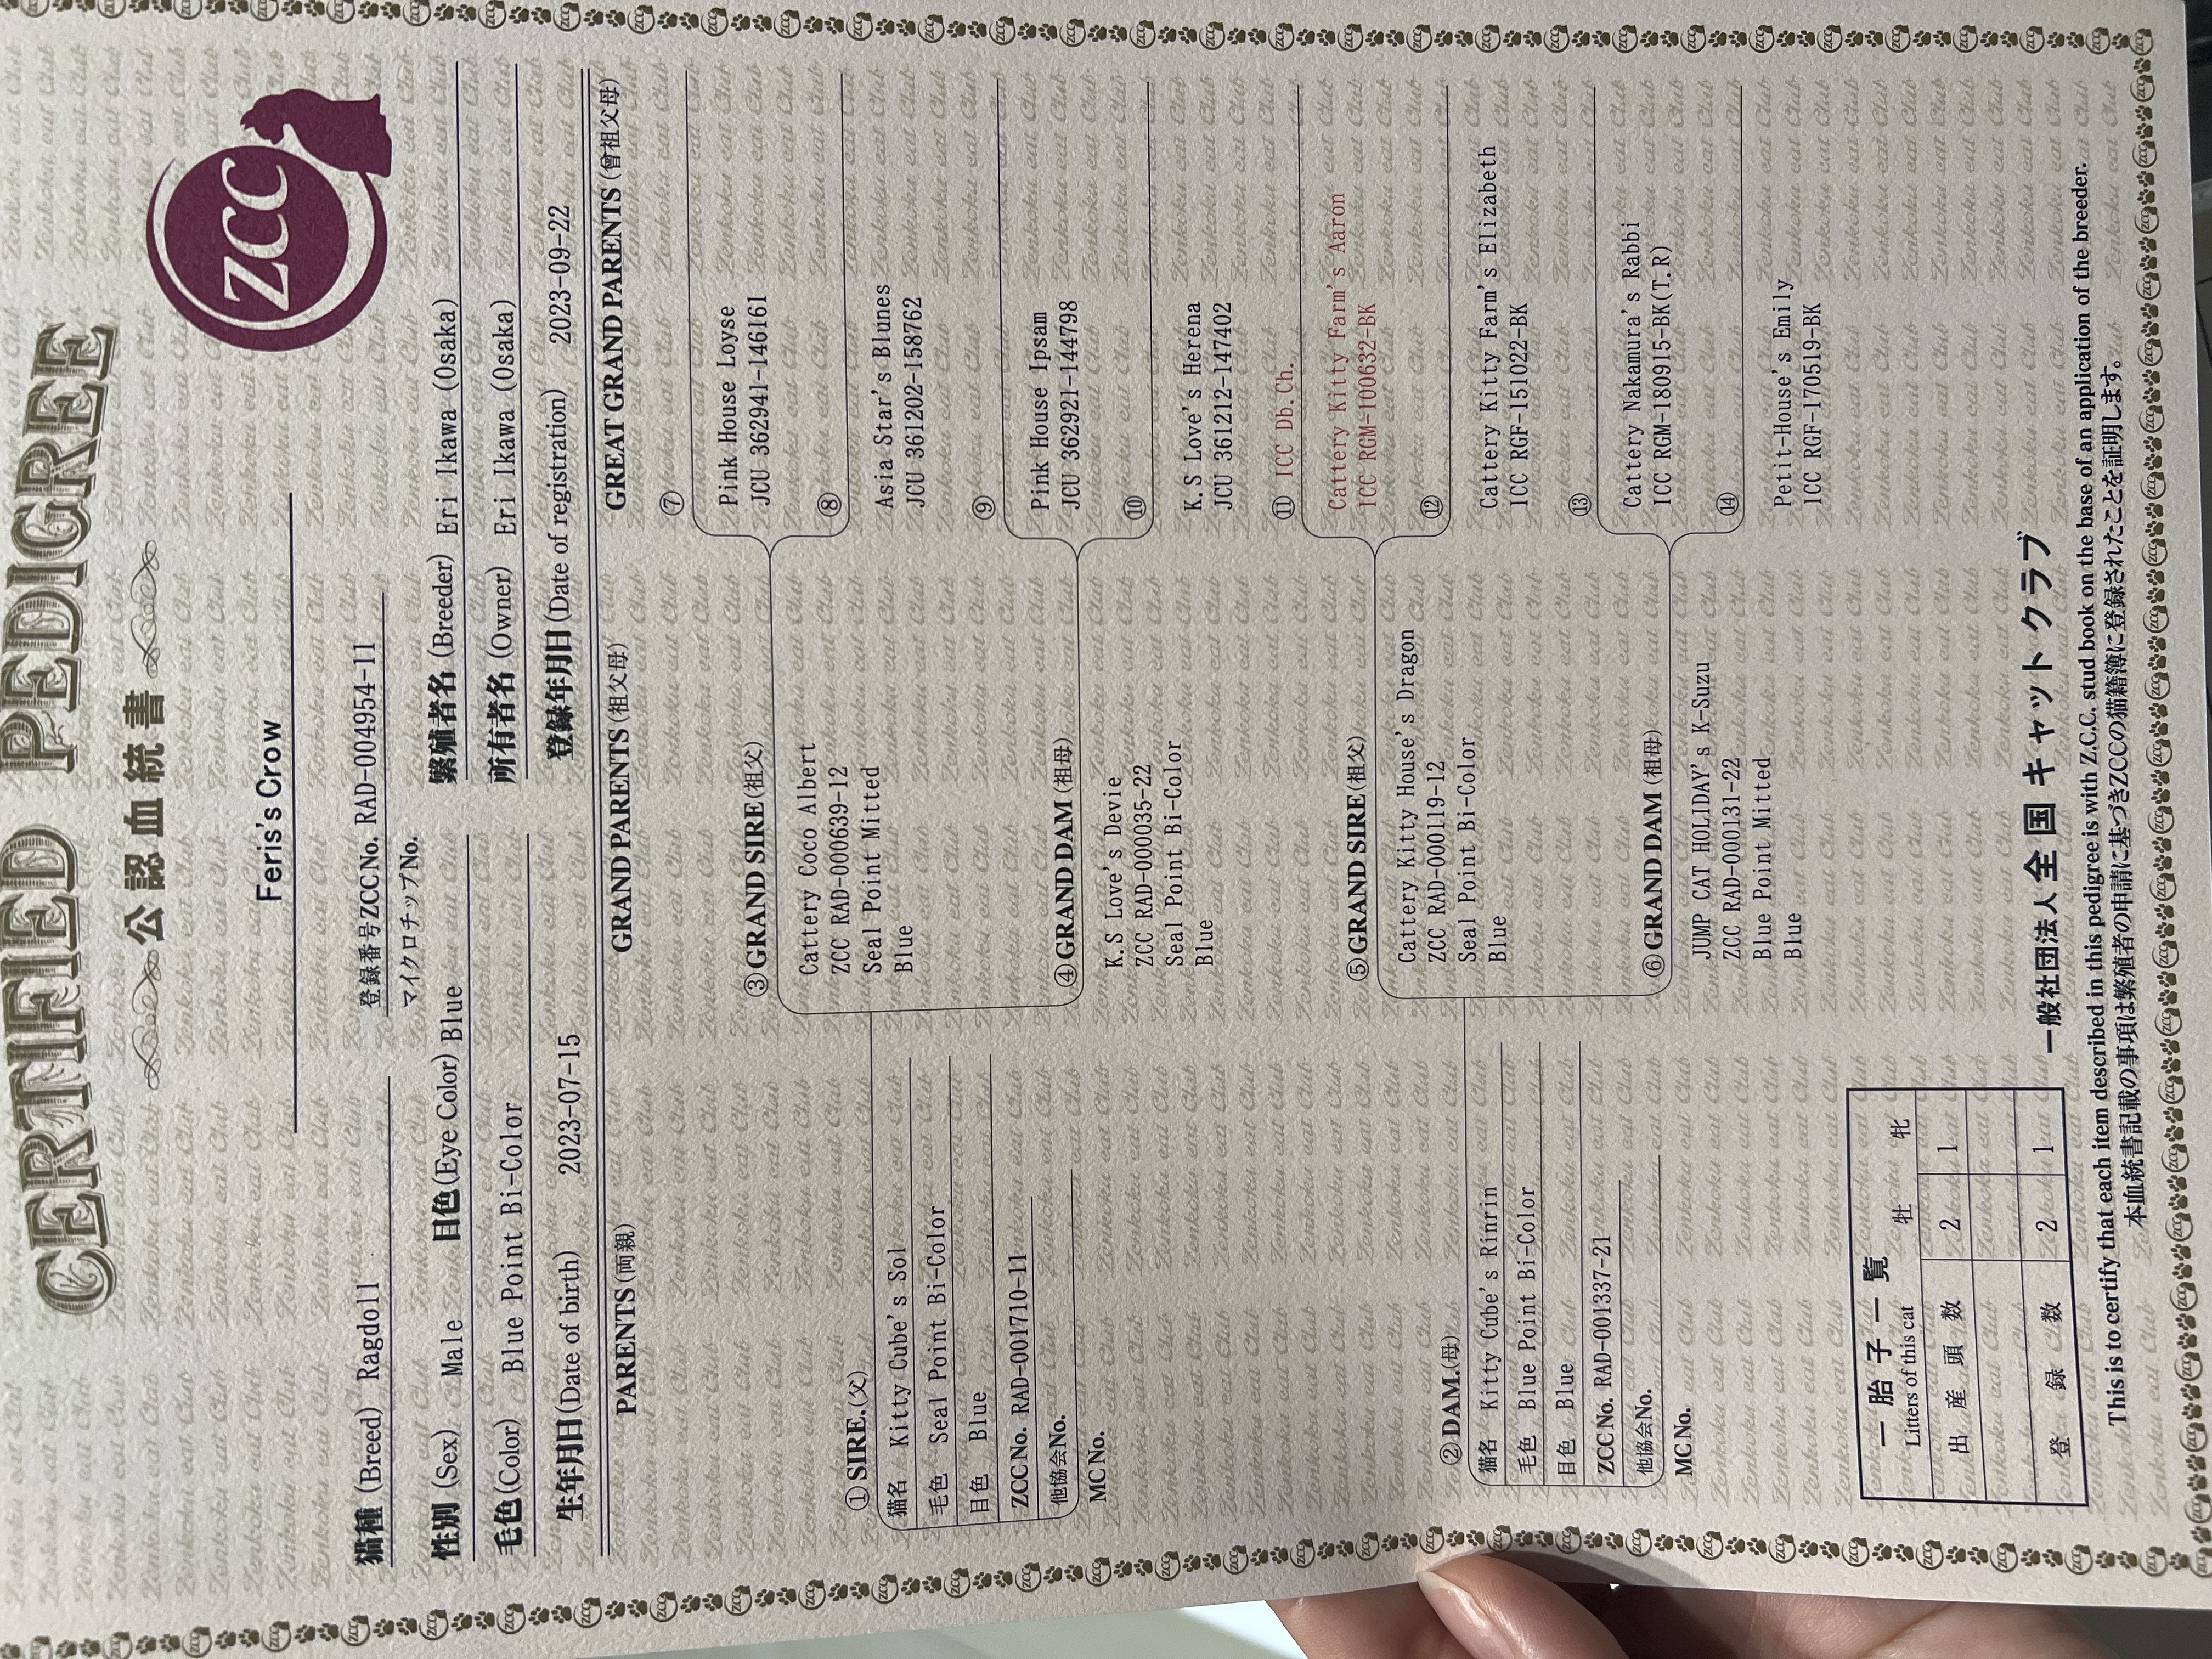 CERTIFIED PEDIGREE
公認血統書
ZCC
Feris's Crow
猫種 (Breed) Ragdoll
登録番号ZCCNo. RAD-004954-11
マイクロチップNo.
性別 (Sex) Male 目色(Eye Color) Blue
繁殖者名 (Breeder) Eri Ikawa (Osaka)
毛色(Color) Blue Point Bi-Color
所有者名 (Owner) Eri Ikawa (Osaka)
生年月日(Date of birth) 2023-07-15
登録年月日(Date of registration) 2023-09-22
PARENTS(両親)
GRAND PARENTS(祖父母)
GREAT GRAND PARENTS(曾祖父母)
① SIRE.(父)
猫名 Kitty Cube's Sol
毛色 Seal Point Bi-Color
目色 Blue
ZCC No. RAD-001710-11
他協会No.
MC No.
② DAM.(母)
猫名 Kitty Cube's Rinrin
毛色 Blue Point Bi-Color
目色 Blue
ZCC No. RAD-001337-21
他協会No.
MC No.
③ GRAND SIRE(祖父)
Cattery Coco Albert
ZCC RAD-000639-12
Seal Point Mitted
Blue
④ GRAND DAM (祖母)
K.S Love's Devie
ZCC RAD-000035-22
Seal Point Bi-Color
Blue
⑤ GRAND SIRE(祖父)
Cattery Kitty House's Dragon
ZCC RAD-000119-12
Seal Point Bi-Color
Blue
⑥ GRAND DAM (祖母)
JUMP CAT HOLIDAY's K-Suzu
ZCC RAD-000131-22
Blue Point Mitted
Blue
⑦
Pink House Loyse
JCU 362941-146161
⑧
Asia Star's Blunes
JCU 361202-158762
⑨
Pink House Ipsam
JCU 362921-144798
⑩
K.S Love's Herena
JCU 361212-147402
⑪ ICC Db.Ch.
Cattery Kitty Farm's Aaron
ICC RGM-100632-BK
⑫
Cattery Kitty Farm's Elizabeth
ICC RGF-151022-BK
⑬
Cattery Nakamura's Rabbi
ICC RGM-180915-BK(T.R)
⑭
Petit-House's Emily
ICC RGF-170519-BK
一胎子一覧
Litters of this cat
牡 牝
出産頭数 2 1
登録数 2 1
一般社団法人 全国キャットクラブ
This is to certify that each item described in this pedigree is with Z.C.C. stud book on the base of an application of the breeder.
本血統書記載の事項は繁殖者の申請に基づきZCCの猫籍簿に登録されたことを証明します。